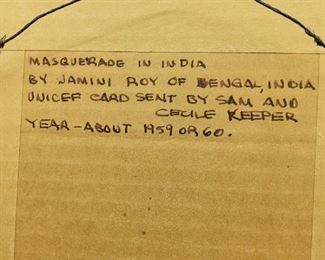 MASQUERADE IN INDIA
BY JAMINI ROY OF BENGAL, INDIA
UNICEF CARD SENT BY SAM AND
CECILE KEEPER
YEAR - ABOUT 1959 OR 60.